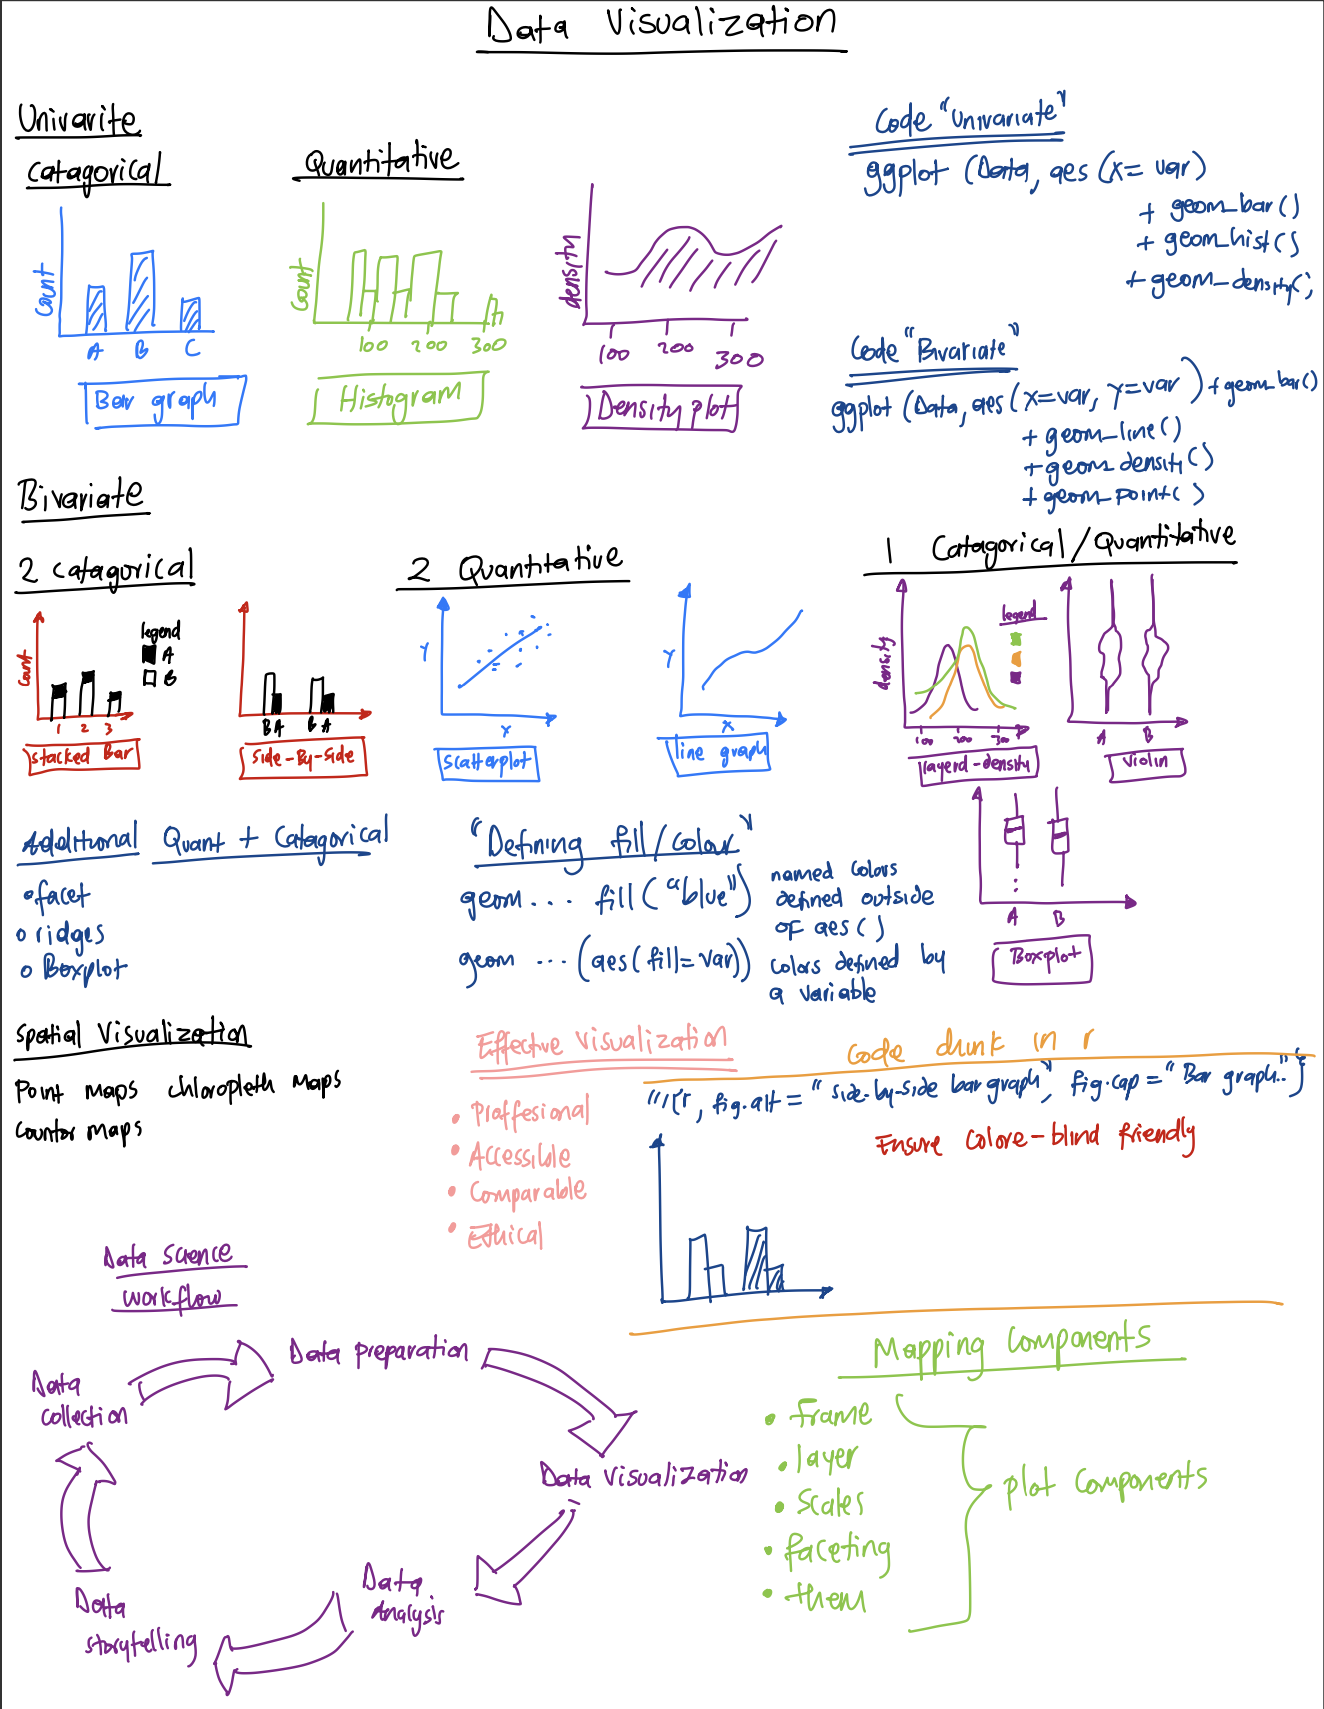 Data Visualization
Univarite
Catagorical
Count
A B C
Bar graph
Quantitative
Count
100 200 300
Histogram
density
100 200 300
Density plot
Code "Univariate"
ggplot (Data, aes (x= var)
+ geom_bar()
+ geom_hist()
+ geom_density(;
Code "Bivariate"
ggplot (Data, aes (x=var, y=var) + geom_bar()
+ geom_line()
+ geom_density()
+ geom_point()
Bivariate
2 catagorical
Count
1 2 3
legend
A
B
Stacked Bar
B A B A
Side-By-Side
2 Quantitative
Y
X
Scatterplot
Y
X
line graph
1 Catagorical/Quantitative
density
100 200 300
legend
layerd-density
A B
Violin
A B
Boxplot
Additional Quant + Catagorical
facet
ridges
Boxplot
"Defining fill/colour"
geom... fill("blue")
named colors
defined outside
of aes()
geom ...(aes(fill=var))
colors defined by
a variable
Spatial Visualization
Point maps chloropleth maps
Countor maps
Effective Visualization
• Proffesional
• Accessible
• Comparable
• Ethical
Code chunk in r
"'{r, fig.alt = "side-by-side bar graph", fig.cap = "Bar graph.."}
Ensure Colore-blind friendly
Data Science
workflow
Data
collection
Data preparation
Data Visualization
Data
Analysis
Data
storytelling
Mapping Components
• frame
• layer
• Scales
• faceting
• them
plot components